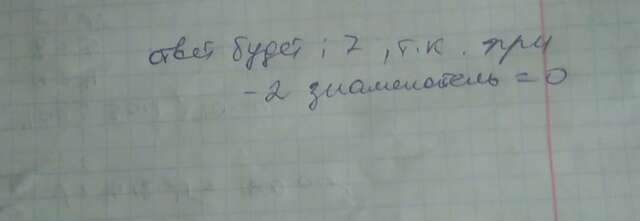 ответ будет; 7, т.к. при
-2 знаменатель = 0